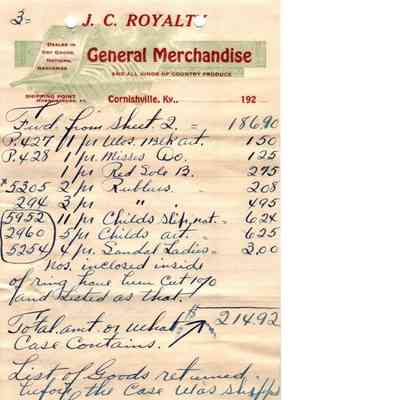 3=
J. C. ROYALTY
DEALER IN
DRY GOODS,
NOTIONS,
HARDWARE
General Merchandise
AND ALL KINDS OF COUNTRY PRODUCE
SHIPPING POINT
Cornishville, Ky., 192
Fwd. from sheet 2. = 186.90
P.427 1 pr Wos. Blk art. 150
P.428 1 pr. Misses Do. 125
1 pr Red Sole B. 275
#5205 2 pr Rubbers. 208
294 3 pr " " 495
5952 11 pr Childs slip, nat. = 624
2960 5 pr Childs art. 625
5254 4 pr. Sandal Ladies = 3.00
Nos. inclosed inside
of ring have been cut 1970
and listed as that.
Total amt. or what 214.92
Case Contains.
List of Goods returned
before the Case was shipped